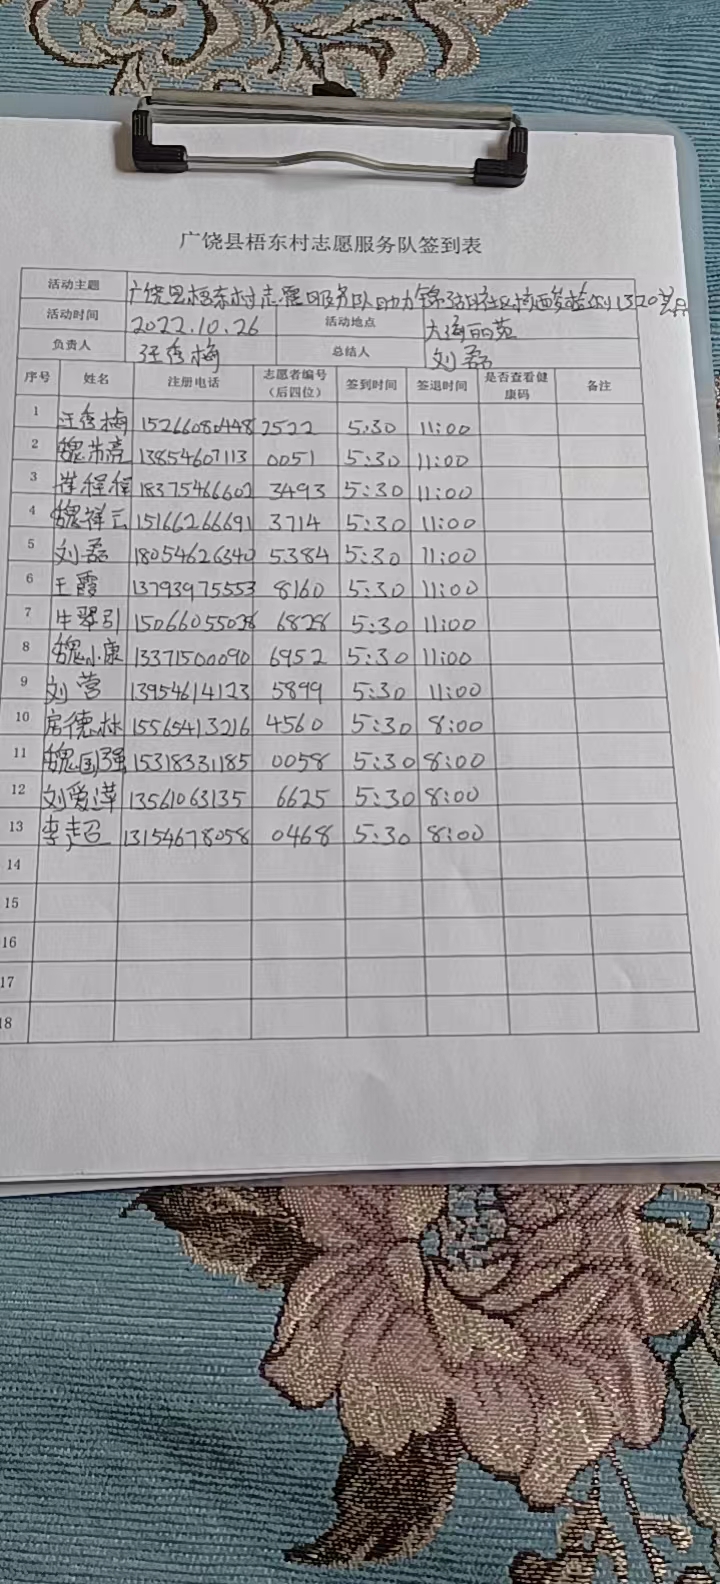 广饶县梧东村志愿服务队签到表
活动主题 广饶县梧东村志愿服务队助力锦湖社区核酸检测
活动时间 2022.10.26 活动地点 大海丽苑
负责人 汪秀梅 总结人 刘磊
序号 姓名 注册电话 志愿者编号（后四位） 签到时间 签退时间 是否查看健康码 备注
1 汪秀梅 15266080448 2522 5:30 11:00
2 13854607113 0051 5:30 11:00
3 崔程程 18375466602 3493 5:30 11:00
4 魏祥云 15166266691 3714 5:30 11:00
5 刘磊 18054626340 5384 5:30 11:00
6 王霞 13793975553 8160 5:30 11:00
7 牛翠引 6828 5:30 11:00
8 魏小康 13371500090 6952 5:30 11:00
9 刘营 13954614123 5899 5:30 11:00
10 房德林 15565413216 4560 5:30 8:00
11 魏国强 15318331185 0058 5:30 8:00
12 刘爱萍 13561063135 6625 5:30 8:00
13 李超 13154678058 0468 5:30 8:00
14
15
16
17
18